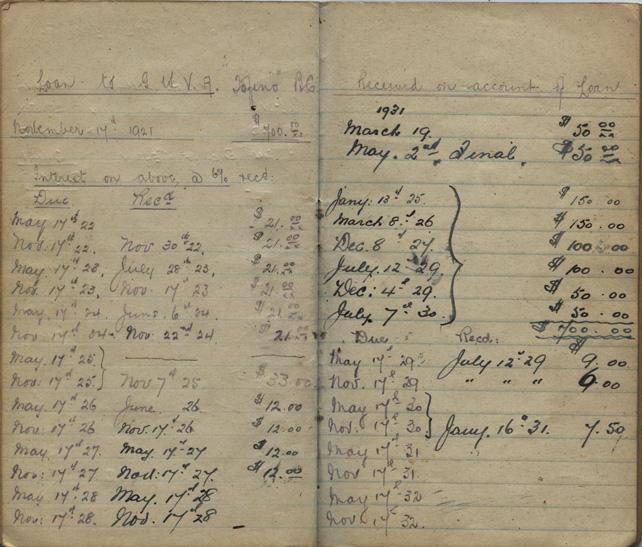 Loan to G.W.V.A. Tofino B.C.
November 17th 1921 $700.00
Interest on above @ 6% recd:
Due Recd
May 17th 22 $21.00
Nov. 17th 22. Nov 30th 22, $21.00
May 17th 23, July 28th 23, $21.00
Nov. 17th 23, Nov. 17th 23 $21.00
May 17th 24 June 6th 24 $21.00
Nov 17th 24 - Nov 22nd 24 $21.00
May 17th 25
Nov. 17th 25 Nov 7th 25 $33.00
May 17th 26 June 26 $12.00
Nov 17th 26 Nov. 17th 26 $12.00
May 17th 27. May 17th 27 $12.00
Nov: 17th 27 Nov: 17th 27. $12.00
May 17th 28 May. 17th 28
Nov: 17th 28. Nov. 17th 28
Received on account of Loan
1931
March 19. $50.00
May. 2nd, Final. $50.00
Jany: 13th 25. $150.00
March 8th 26 $150.00
Dec. 8th 27. $100.00
July. 12th 29. $100.00
Dec: 4th 29. $50.00
July. 7th 30. $50.00
$700.00
Due Recd:
May 17th 29 July 12th 29 $9.00
Nov. 17th 29 " " " 9.00
May 17th 30
Nov: 17th 30 Jany. 16th 31. 7.50
May 17th 31
Nov 17th 31.
May 17th 32
Nov 17th 32.